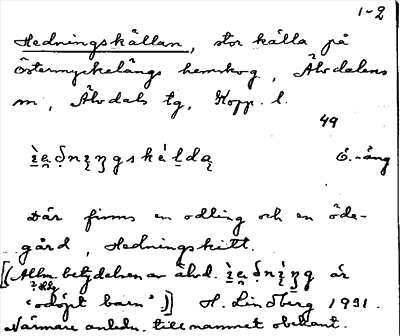 1-2
Hedningskällan, stor källa på
Östermyckelängs hemskog, Älvdalens
sn, Älvdals tg, Kopp. l.
49
Ö.-äng
Där finns en odling och en öde-
gård, Hedningskitt.
[(Allm. betydelsen av älvd. är
"odöpt barn".)] H. Lindberg 1931.
Närmare anledn. till namnet obekant.